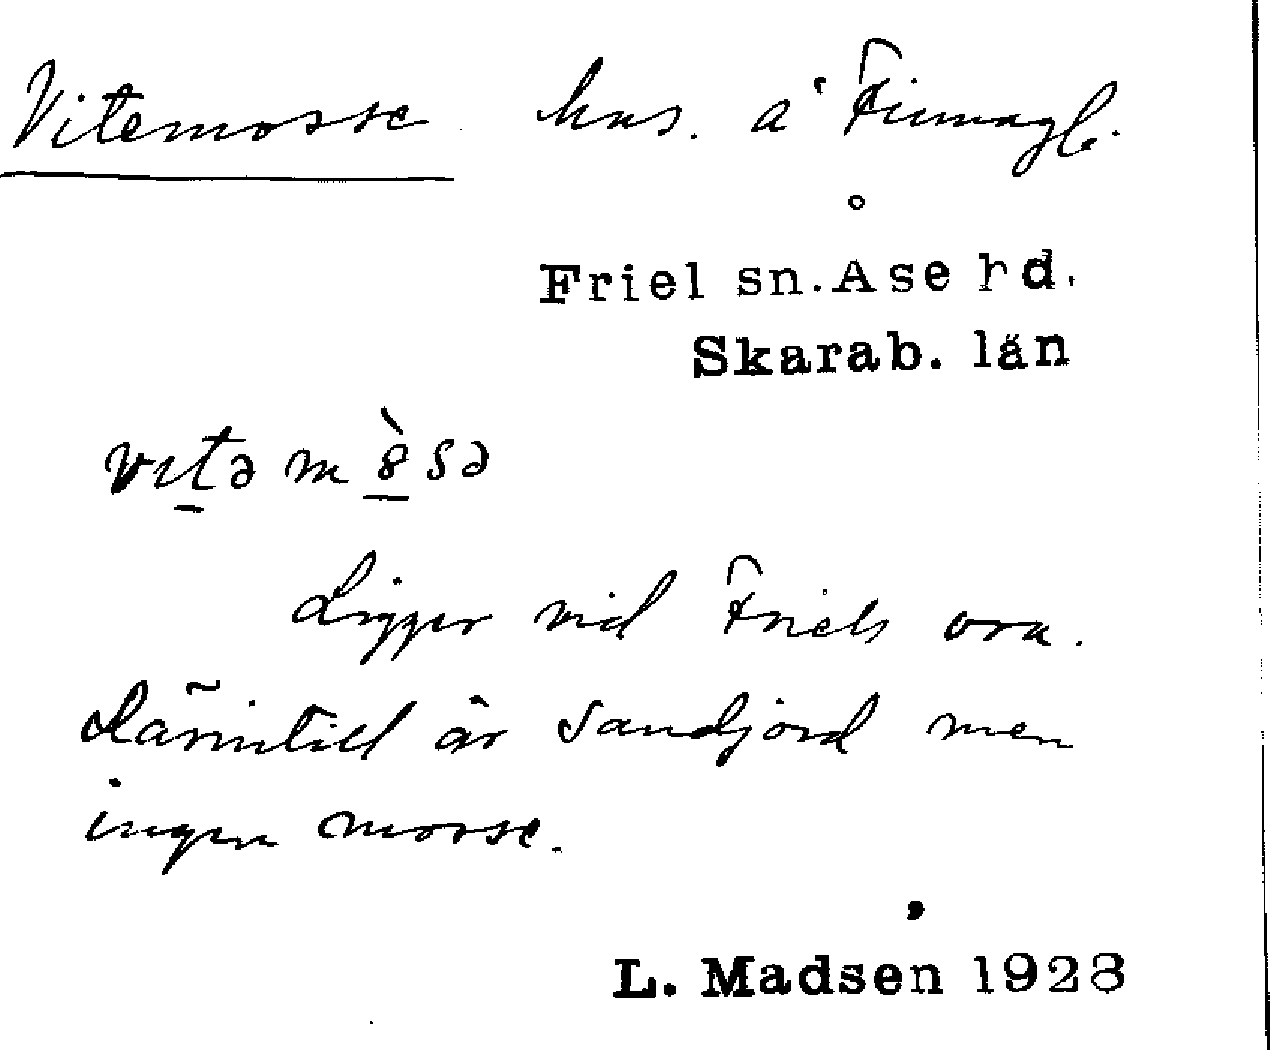 Vitemosse hus. å Finnagb.
Friel sn. Åse hd.
Skarab. län
vıtə m8̀sə
Ligger vid Friels ora.
Därintill är sandjord men
ingen mosse.
L. Madsen 1928